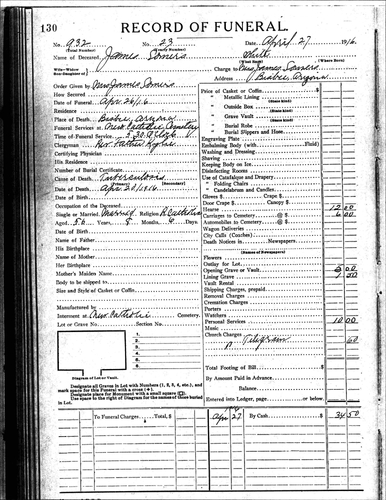 130
RECORD OF FUNERAL.
No. 932 No. 23 Date, April 27 1916
(Total Number) (Yearly Number)
Name of Deceased James Somers White
Wife-Widow (What Race) (Where Born)
Son-Daughter of Charge to Mrs James Somers
Address Bisbee, Arizona
Order Given by Mrs James Somers
How Secured
Date of Funeral Apr 26/16
Residence
Place of Death Bisbee Arizona
Funeral Services at New Catholic Cemetery
Time of Funeral Service 2.30 o'clock
Clergyman Rev. Father
Certifying Physician
His Residence
Number of Burial Certificate
Cause of Death Tuberculosis
(Primary) (Secondary)
Date of Death Apr 20/1916
Occupation of the Deceased
Single or Married Married Religion R Catholic
Aged 50 Years, 5 Months, 4 Days
Date of Birth
Name of Father
His Birthplace
Name of Mother
Her Birthplace
Mother's Maiden Name
Body to be shipped to
Size and Style of Casket or Coffin
Manufactured by
Interment at New Catholic Cemetery
Lot or Grave No. Section No.
1.
2.
3.
4.
5.
6.
7.
8.
Diagram of Lot or Vault.
Designate all Graves in Lot with Numbers (1, 2, 3, 4, etc.), and
mark space for this Funeral with a cross (+).
Designate place for Monument with a small square (□).
Use space to the right of Diagram for the names of those buried
in Lot.
Price of Casket or Coffin
" Metallic Lining
(State kind)
Outside Box
(State kind)
" Grave Vault
(State kind)
" Burial Robe
(State kind)
" Burial Slippers and Hose
Engraving Plate
Embalming Body (with Fluid)
Washing and Dressing
Shaving
Keeping Body on Ice
Disinfecting Rooms
Use of Catafalque and Drapery
" Folding Chairs
" Candelabrum and Candles
Gloves $ Crape $
Door Crape $ Canopy $
Hearse 12 00
Carriages to Cemetery @ $ 6 00
Automobiles to Cemetery @ $
Wagon Deliveries
City Calls (Coaches)
Death Notices in Newspapers
(Names of Newspapers)
Flowers
Outlay for Lot
Opening Grave or Vault 00
Lining Grave 50
Vault Rental
Shipping Charges, prepaid
Removal Charges
Cremation Charges
Porters
Watchers
Personal Services 10 00
Music
Church Charges
" Telegram 60
Total Footing of Bill $
By Amount Paid in Advance
Balance $
Entered into Ledger, page or below.
To Funeral Charges Total, $ Apr 27 By Cash $ 34 50